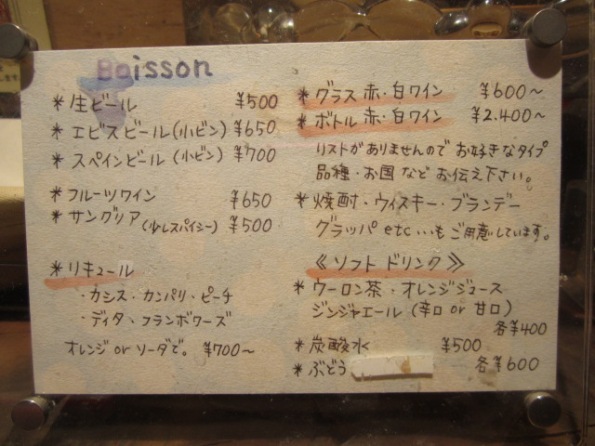 Boisson
*生ビール ¥500
*エビスビール(小ビン) ¥650
*スペインビール(小ビン) ¥700
*フルーツワイン ¥650
*サングリア(少しスパイシー) ¥500
*リキュール
・カシス・カンパリ・ピーチ
・ディタ・フランボワーズ
オレンジ or ソーダで。 ¥700~
*グラス 赤・白ワイン ¥600~
*ボトル 赤・白ワイン ¥2.400~
リストがありませんので お好きなタイプ
品種・お国 など お伝え下さい。
*焼酎・ウィスキー・ブランデー
グラッパ etc…もご用意しています。
《ソフト ドリンク》
*ウーロン茶・オレンジジュース
ジンジャエール (辛口 or 甘口)
各¥400
*炭酸水 ¥500
*ぶどう 各¥600